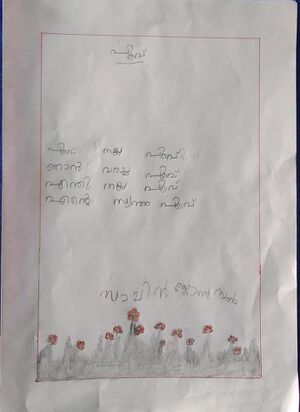 പൂവ്
പൂവ് നല്ല പൂവ്
ഞാൻ വരച്ച പൂവ്
എന്തു നല്ല പൂവ്
എന്റെ സ്വന്തം പൂവ്
സാലിൻ ജോൺ